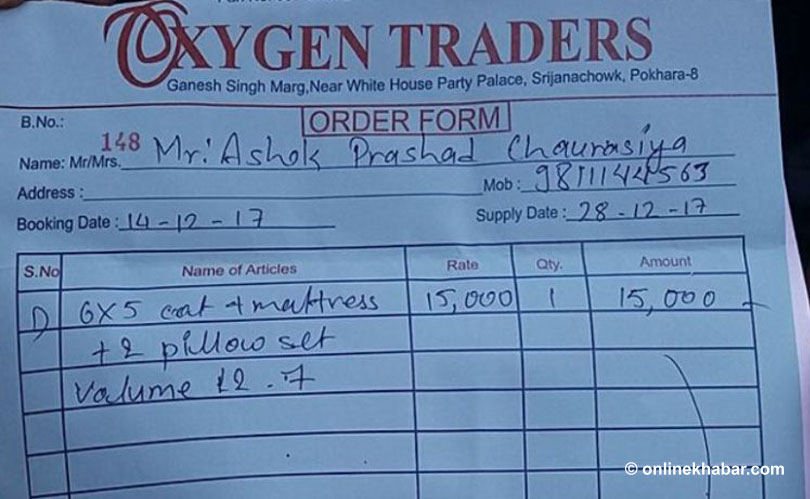 OXYGEN TRADERS
Ganesh Singh Marg,Near White House Party Palace, Srijanachowk, Pokhara-8
B.No.: 148
ORDER FORM
Name: Mr/Mrs. Mr. Ashok Prashad Chaurasiya
Address : Mob : 9811144563
Booking Date : 14-12-17 Supply Date : 28-12-17
S.No Name of Articles Rate Qty. Amount
1) 6x5 coat + mattress 15,000 1 15,000
+ 2 pillow set
Valume 12.7
© onlinekhabar.com